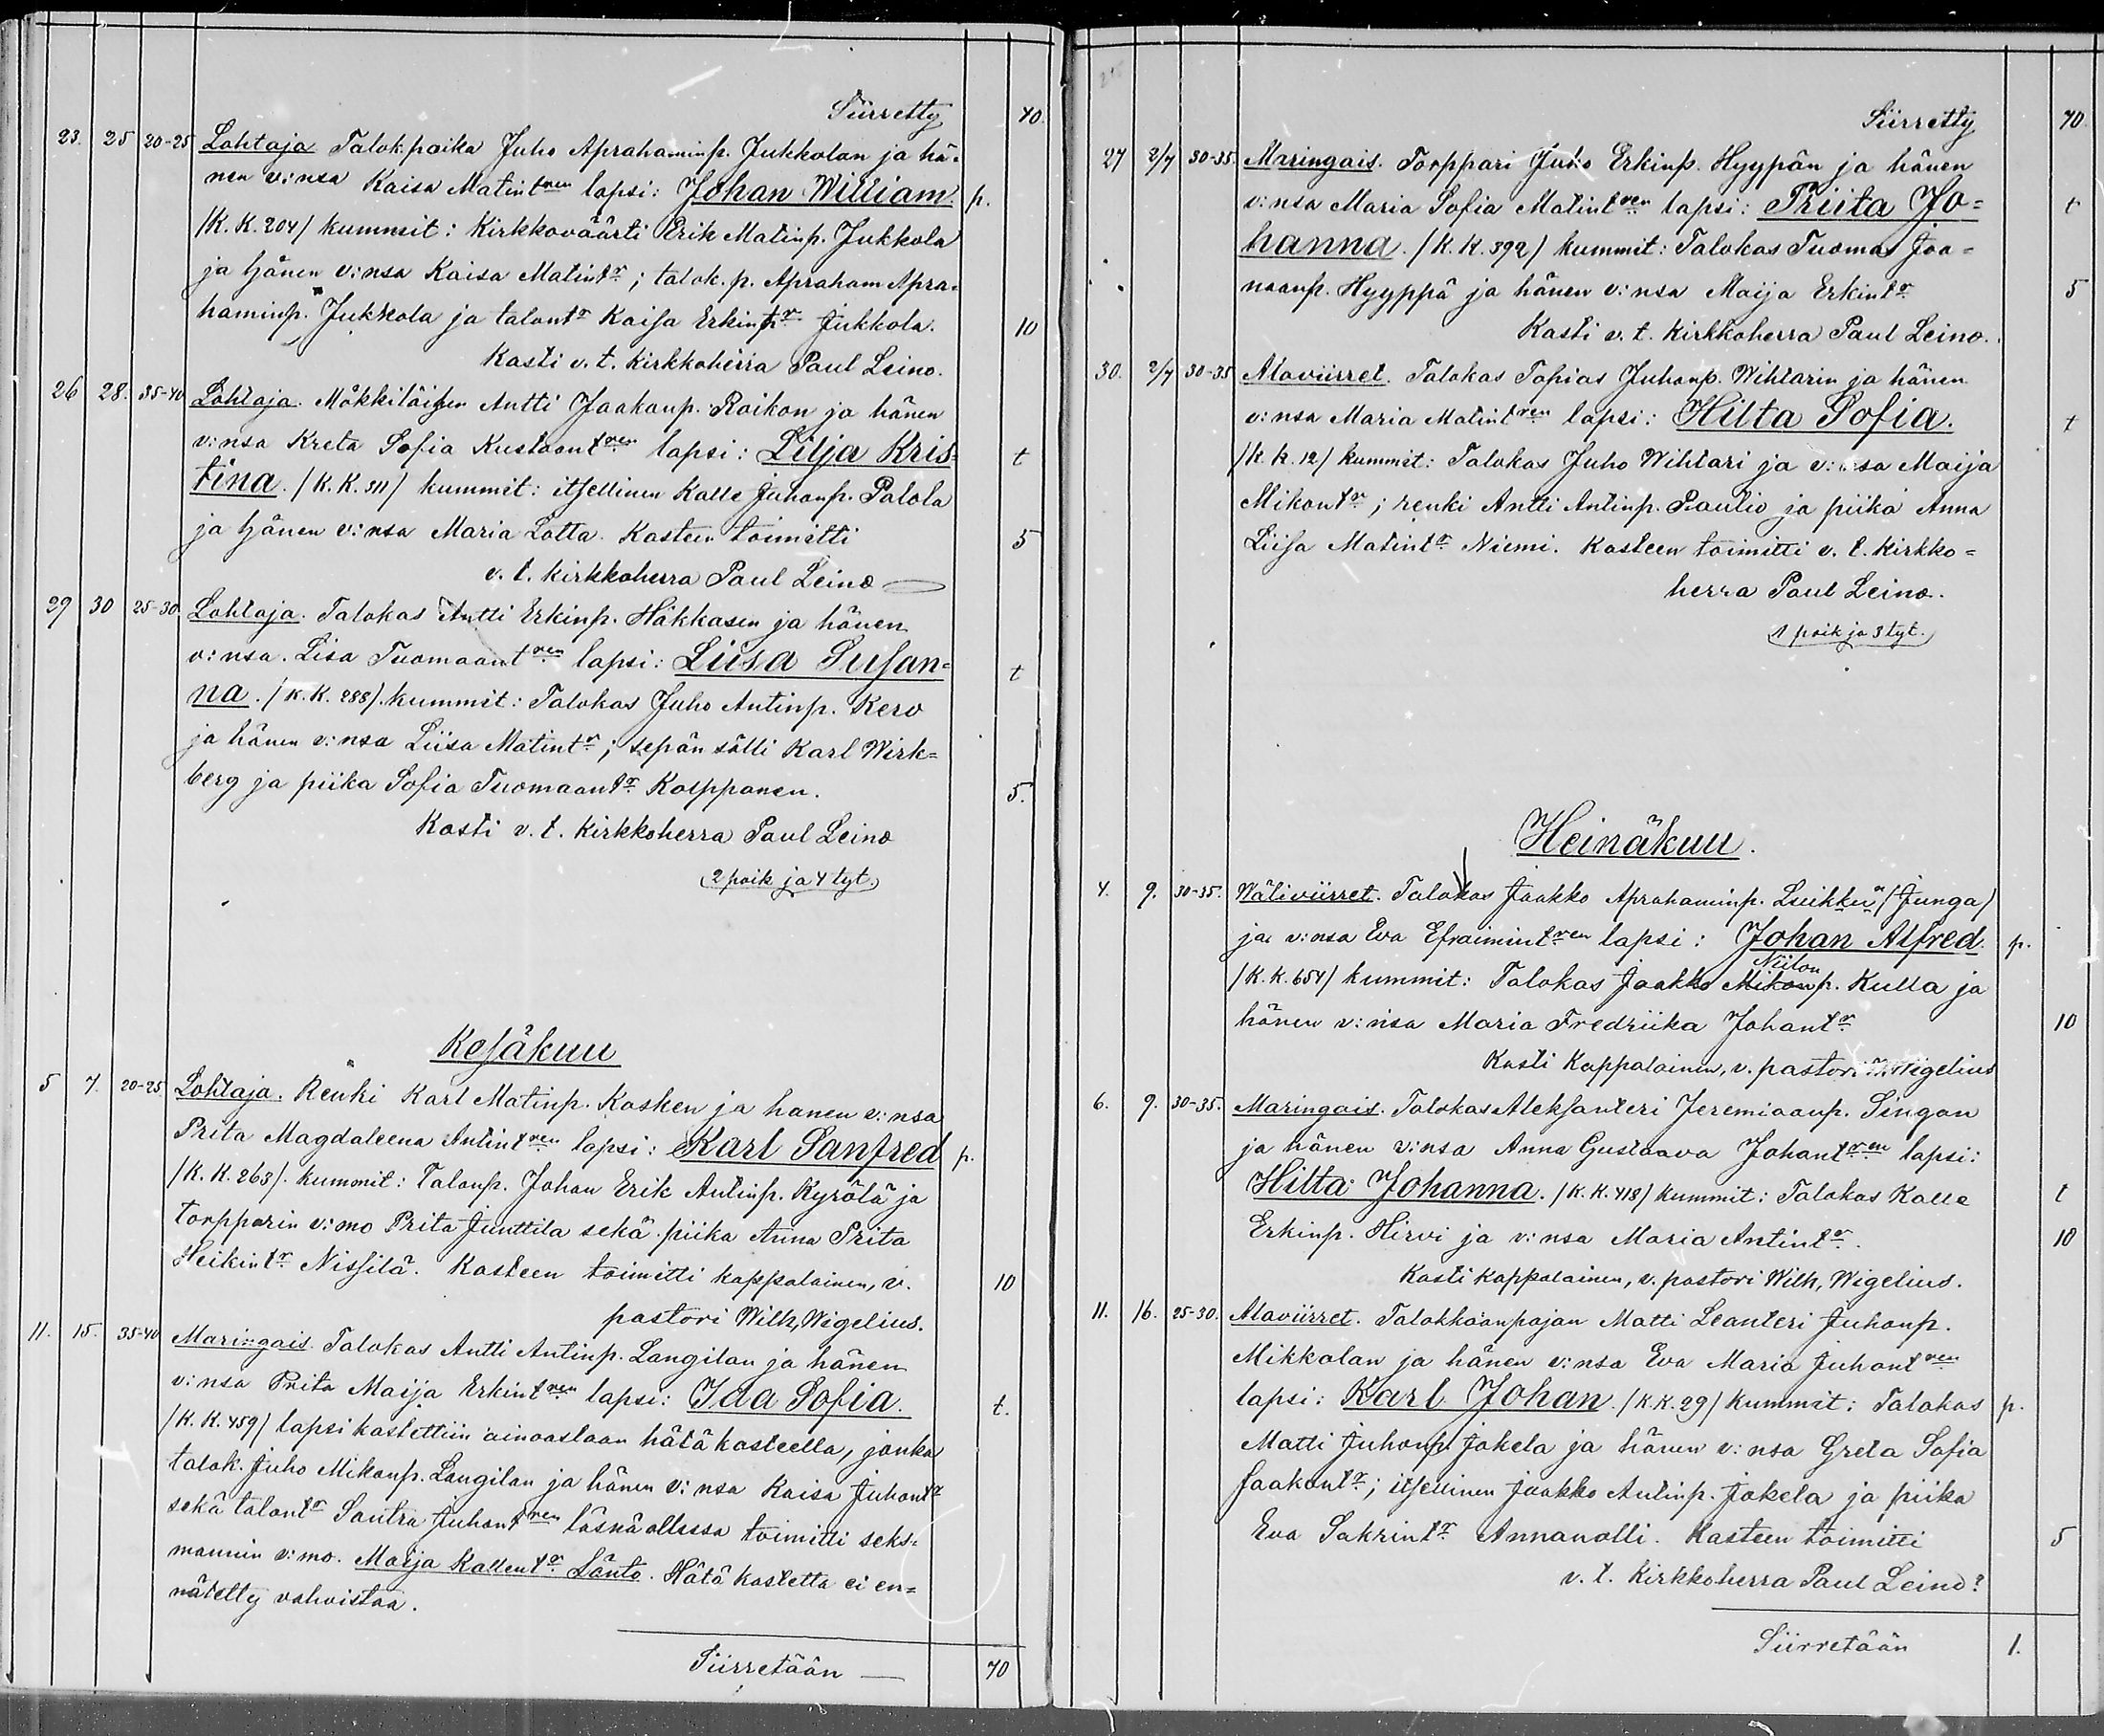 Siirretty 70.
23. 25 20-25 Lohtaja Talok.poika Juho Aprahaminp. Jukkolan ja hä-
nen v:nsa Kaisa Matintren lapsi: Johan William. p.
/K.K. 204/ kummit: Kirkkoväärti Erik Matinp. Jukkola
ja hänen v:nsa Kaisa Matintr; talok. p. Apraham Apra-
haminp. Jukkola ja talontr Kaisa Erkintr Jukkola. 10
Kasti v. t. Kirkkoherra Paul Leino.
26 28. 35-40 Lohtaja. Mökkiläisen Antti Jaakonp. Raikon ja hänen
v:nsa Kreta Sofia Kustaantren lapsi: Lilja Kris= t
tina. /K.K. 311/ kummit: itsellinen Kalle Juhanp. Palola
ja hänen v:nsa Maria Lotta. Kasteen toimitti 5
v. t. kirkkoherra Paul Leino
29 30 25-30. Lohtaja. Talokas Antti Erkinp. Häkkasen ja hänen
v:nsa. Lisa Tuomaantren lapsi: Liisa Susan= t
na. /K.K. 288/. kummit: Talokas Juho Antinp. Kero
ja hänen v:nsa Liisa Matintr; sepän sälli Karl Wirk=
berg ja piika Sofia Tuomaantr Korpponen. 5.
Kasti v. t. Kirkkoherra Paul Leino
(2 poik ja 4 tyt.)
Kesäkuu
5 7. 20-25 Lohtaja. Renki Karl Matinp. Kasken ja hanen v:nsa
Prita Magdaleena Antintren lapsi: Karl Sanfred p.
/K.K. 263/. kummit: Talonp. Johan Erik Antinp. Kyrölä ja
torpparin v:mo Prita Junttila sekä piika Anna Prita
Heikintr Nissilä. Kasteen toimitti kappalainen, v. 10
pastori Wilh, Wigelius.
11. 15. 35-40 Maringais. Talokas Antti Antinp. Langilan ja hänen
v:nsa Prita Maija Erkintren lapsi: Ida Sofia. t.
/K.K. 459/ lapsi kastettiin ainoastaan hätäkasteella, jonka
talok. Juho Mikonp. Langilan ja hänen v:nsa Kaisa Juhontr
sekä talontr Santra Juhontren läsnä ollessa toimitti seks-
mannin v:mo. Maija Kallentr Läntö. Hätäkastetta ei en=
nätetty vahvistaa.
Siirretään — 70
Siirretty 70.
27 2/7 30-35. Maringais. Torppari Juho Erkinp. Hyypän ja hänen
v:nsa Maria Sofia Matintren lapsi: Priita Jo= t
hanna. /K.K. 392/ kummit: Talokas Tuomas Joo=
naanp. Hyyppä ja hänen v:nsa Maija Erkintr 5
Kasti v. t. Kirkkoherra Paul Leino.
30. 2/7 30-35 Alaviirret. Talokas Topias Juhonp. Wihtarin ja hänen
v:nsa Maria Matintren lapsi: Hilta Sofia. t
/K.K. 12/ kummit: Talokas Juho Wihtari ja v:nsa Maija
Mikontr; renki Antti Antinp. Paulio ja piika Anna
Liisa Matintr Niemi. Kasteen toimitti v. t. Kirkko=
herra Paul Leino.
1 poik ja 3 tyt.
Heinäkuu.
4. 9. 30-35. Wäliviirret. Talokas Jaakko Aprahaminp. Luikku /Junga/
ja v:nsa Eva Efraimintren lapsi: Johan Alfred. p.
Niilon
/K.K. 654/ kummit: Talokas Jaakko Mikonp. Kulla ja
hänen v:nsa Maria Fredriika Johantr 10
Kasti Kappalainen, v. pastori Wigelius
6. 9. 30-35. Maringais. Talokas Aleksanteri Jeremiaanp. Singon
ja hänen v:nsa Anna Gustaava Johantren lapsi:
Hilta Johanna. /K.K. 418/ kummit: Talokas Kalle t
Erkinp. Hirvi ja v:nsa Maria Antintr. 10
Kasti kappalainen, v. pastori Wilh, Wigelius.
11. 16. 25-30. Alaviirret. Talokkaanpojan Matti Leanteri Juhonp.
Mikkolan ja hänen v:nsa Eva Maria Juhontren
lapsi: Karl Johan. /K.K. 29/ kummit: Talokas p.
Matti Juhonp. Jokela ja hänen v:nsa Greta Sofia
Jaakontr; itsellinen Jaakko Antinp. Jokela ja piika
Eva Sakrintr Annanolli. Kasteen toimitti 5
v. t. Kirkkoherra Paul Leino?
Siirretään 1.